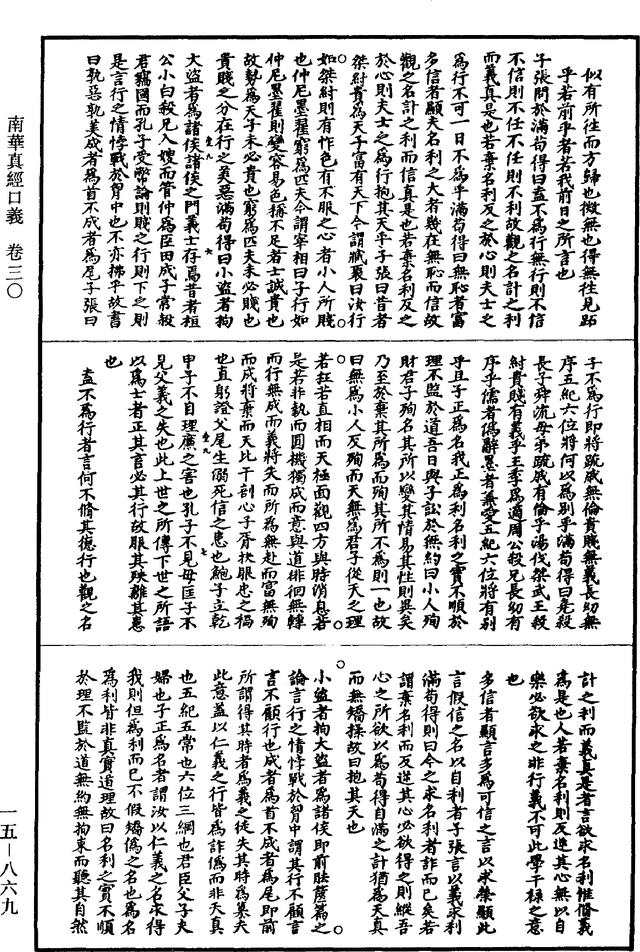 似有所往而方歸也微無也得無往見跖
乎若前乎者若我前日之所言也
子張問於滿苟得曰盍不為行無行則不信
不信則不任不任則不利故觀之名計之利
而義真是也若棄名利反之於心則夫士之
為行不可一日不為乎滿苟得曰無恥者富
多信者顯夫名利之大者幾在無恥而信故
觀之名計之利而信真是也若棄名利反之
於心則夫士之為行抱其天乎子張曰昔者
桀紂貴為天子富有天下今謂臧聚曰汝行
如桀紂則有怍色有不服之心者小人所賤
也仲尼墨翟窮為匹夫今謂宰相曰子行如
仲尼墨翟則變容易色稱不足者士誠貴也
故勢為天子未必貴也窮為匹夫未必賤也
貴賤之分在行之美惡滿苟得曰小盜者拘
大盜者為諸侯諸侯之門義士存焉昔者桓
公小白殺兄入嫂而管仲為臣田成子常殺
君竊國而孔子受幣論則賤之行則下之則
是言行之情悖戰於胷中也不亦拂乎故書
曰孰惡孰美成者為首不成者為尾子張曰
子不為行即將疏戚無倫貴賤無義長幼無
序五紀六位將何以為別乎滿苟得曰堯殺
長子舜流母弟疏戚有倫乎湯伐桀武王殺
紂貴賤有義乎王季為適周公殺兄長幼有
序乎儒者偽辭墨者兼愛五紀六位將有別
乎且子正為名我正為利名利之實不順於
理不監於道吾日與子訟於無約曰小人殉
財君子殉名其所以變其情易其性則異矣
乃至於棄其所為而殉其所不為則一也故
曰無為小人反殉而天無為君子從天之理
若枉若直相而天極面觀四方與時消息若
是若非執而圓機獨成而意與道徘徊無轉
而行無成而義將失而所為無赴而富無殉
而成將棄而天比干剖心子胥抉眼忠之禍
也直躬證父尾生溺死信之患也鮑子立乾
申子不自理廉之害也孔子不見母匡子不
見父義之失也此上世之所傳下世之所語
以為士者正其言必其行故服其殃離其患
也
盍不為行者言何不脩其德行也觀之名
計之利而義真是者言欲求名利惟脩義
為是也人若棄名利則反逆其心無以自
樂必欲求之非行義不可此學干祿之意
也
多信者顯言多為可信之言以求榮顯此
言假信之名以自利者子張言以義求利
滿苟得則曰今之求名利者詐而已矣若
謂棄名利而反逆其心必欲得之則縱吾
心之所欲以為苟得自滿之計猶為天真
而無矯揉故曰抱其天也
小盜者拘大盜者為諸侯即前胠篋篇之
論言行之情悖戰於胷中謂其行不顧言
言不顧行也成者為首不成者為尾即前
所謂得其時者為義之徒失其時為篡夫
此意蓋以仁義之行皆為詐偽而非天真
也五紀五常也六位三綱也君臣父子夫
婦也子正為名者謂汝以仁義之名求得
我則但為利而已不假矯偽之名也為名
為利皆非真實道理故曰名利之實不順
於理不監於道無約無拘束而聽其自然
南華真經口義 卷三〇
一五—八六九